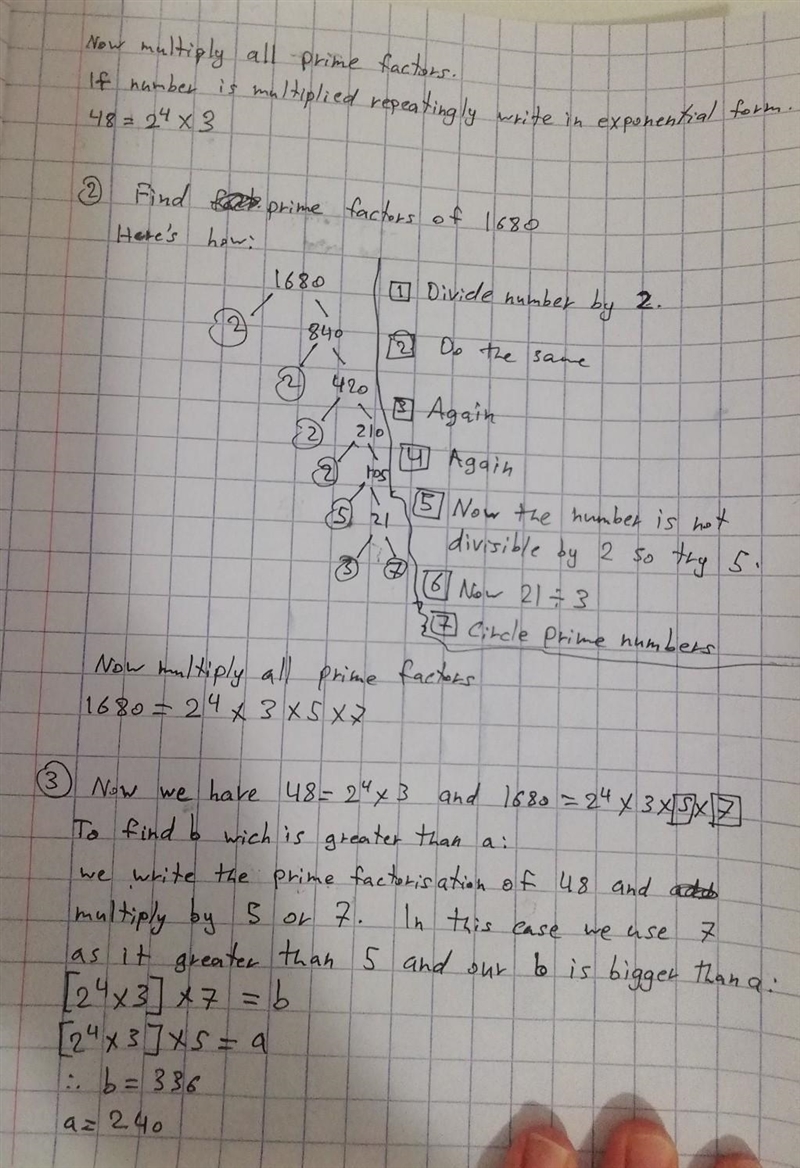 Now multiply all prime factors.
If number is multiplied repeatingly write in exponential form.
48 = 2⁴ × 3
② Find prime factors of 1680
Here's how:
1680
2 840
2 420
2 210
2 105
5 21
3 7
1 Divide number by 2.
2 Do the same
3 Again
4 Again
5 Now the number is not
divisible by 2 so try 5.
6 Now 21 ÷ 3
7 Circle prime numbers
Now multiply all prime factors
1680 = 2⁴ × 3 × 5 × 7
③ Now we have 48 = 2⁴ × 3 and 1680 = 2⁴ × 3 × 5 × 7
To find b wich is greater than a:
we write the prime factorisation of 48 and
multiply by 5 or 7. In this case we use 7
as it greater than 5 and our b is bigger than a:
[2⁴ × 3] × 7 = b
[2⁴ × 3] × 5 = a
∴ b = 336
a = 240